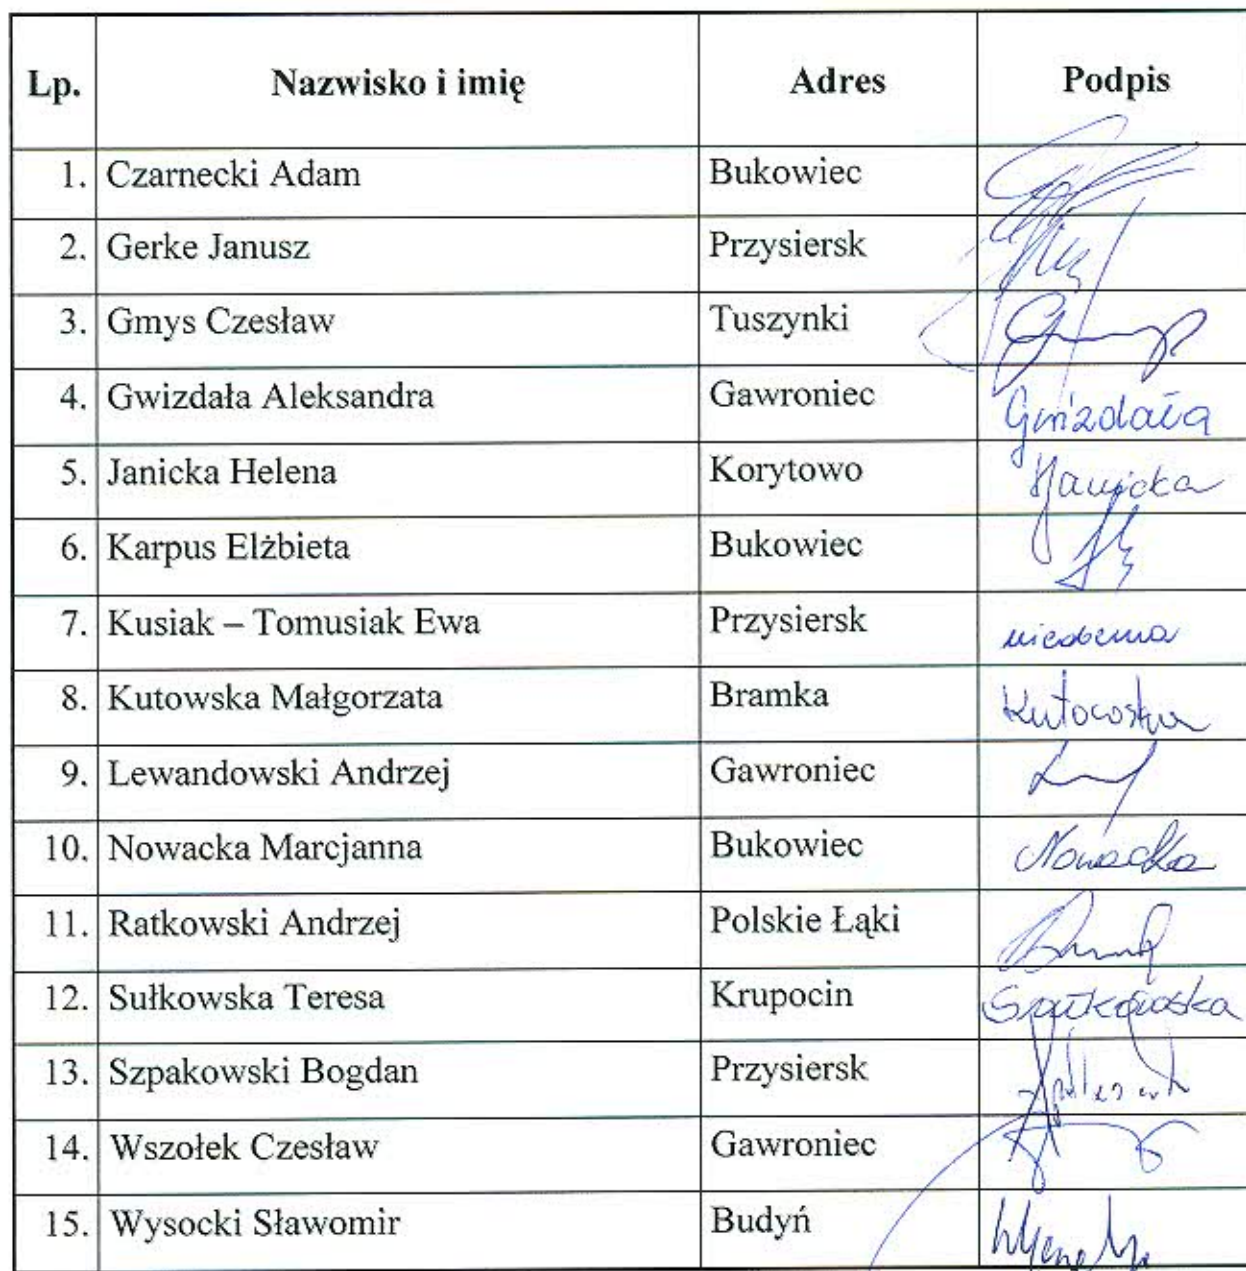 Lp. Nazwisko i imię Adres Podpis
1. Czarnecki Adam Bukowiec
2. Gerke Janusz Przysiersk
3. Gmys Czesław Tuszynki
4. Gwizdała Aleksandra Gawroniec Gwizdała
5. Janicka Helena Korytowo HJanicka
6. Karpus Elżbieta Bukowiec
7. Kusiak – Tomusiak Ewa Przysiersk nieobecna
8. Kutowska Małgorzata Bramka Kutowska
9. Lewandowski Andrzej Gawroniec
10. Nowacka Marcjanna Bukowiec Nowacka
11. Ratkowski Andrzej Polskie Łąki
12. Sułkowska Teresa Krupocin Sułkowska
13. Szpakowski Bogdan Przysiersk
14. Wszołek Czesław Gawroniec
15. Wysocki Sławomir Budyń